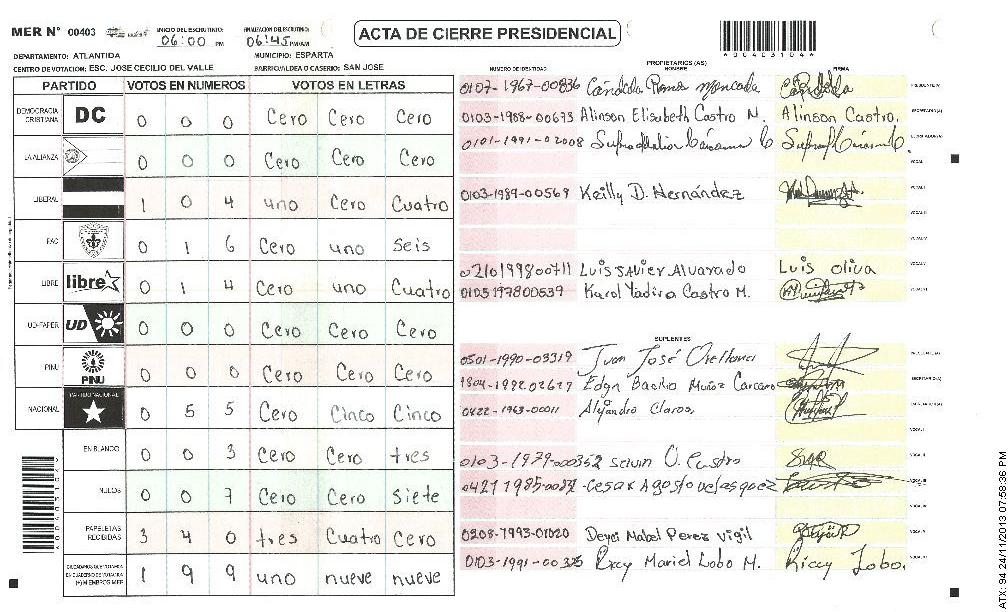 MER N° 00403
INICIO DEL ESCRUTINIO:
06:00 PM
FINALIZACION DEL ESCRUTINIO:
06:45 PM/AM
ACTA DE CIERRE PRESIDENCIAL
DEPARTAMENTO: ATLANTIDA
MUNICIPIO: ESPARTA
CENTRO DE VOTACION: ESC. JOSE CECILIO DEL VALLE
BARRIO/ALDEA O CASERIO: SAN JOSE
PARTIDO VOTOS EN NUMEROS VOTOS EN LETRAS
DEMOCRACIA CRISTIANA DC 0 0 0 Cero Cero Cero
LA ALIANZA 0 0 0 Cero Cero Cero
LIBERAL 1 0 4 uno Cero Cuatro
PAC 0 1 6 Cero uno seis
LIBRE libre 0 1 4 Cero uno Cuatro
UD-FAPER UD 0 0 0 Cero Cero Cero
PINU PINU 0 0 0 Cero Cero Cero
NACIONAL PARTIDO NACIONAL 0 5 5 Cero Cinco Cinco
EN BLANCO 0 0 3 Cero Cero tres
NULOS 0 0 7 Cero Cero siete
PAPELETAS RECIBIDAS 3 4 0 tres Cuatro Cero
1 9 9 uno nueve nueve
PROPIETARIOS (AS)
NUMERO DE IDENTIDAD NOMBRE FIRMA
0107-1967-00836 Cándida Rosa Moncada
0103-1988-00673 Alinson Elisabeth Castro M. Alinson Castro.
0101-1991-02008
0103-1989-00569 Keilly D. Hernández
0210199800711 Luis Javier Alvarado Luis oliva
0105197800539 Karol Yadira Castro M.
SUPLENTES
0501-1990-03319 Juan José Orellana
1804-1992.02627 Edgn Basilio Muñoz Carcamo
0422-1963-00011 Alejandro Claros
0103-1979-000352 Selvin O. Castro
0421 1985-0087 Cesar Agosto velasquez
0208-1993-01020 Deysi Mabel Perez vigil
0103-1991-00325 Riccy Mariel Lobo M. Riccy Lobo.
ATX: 94 24/11/2013 07:58:36 PM